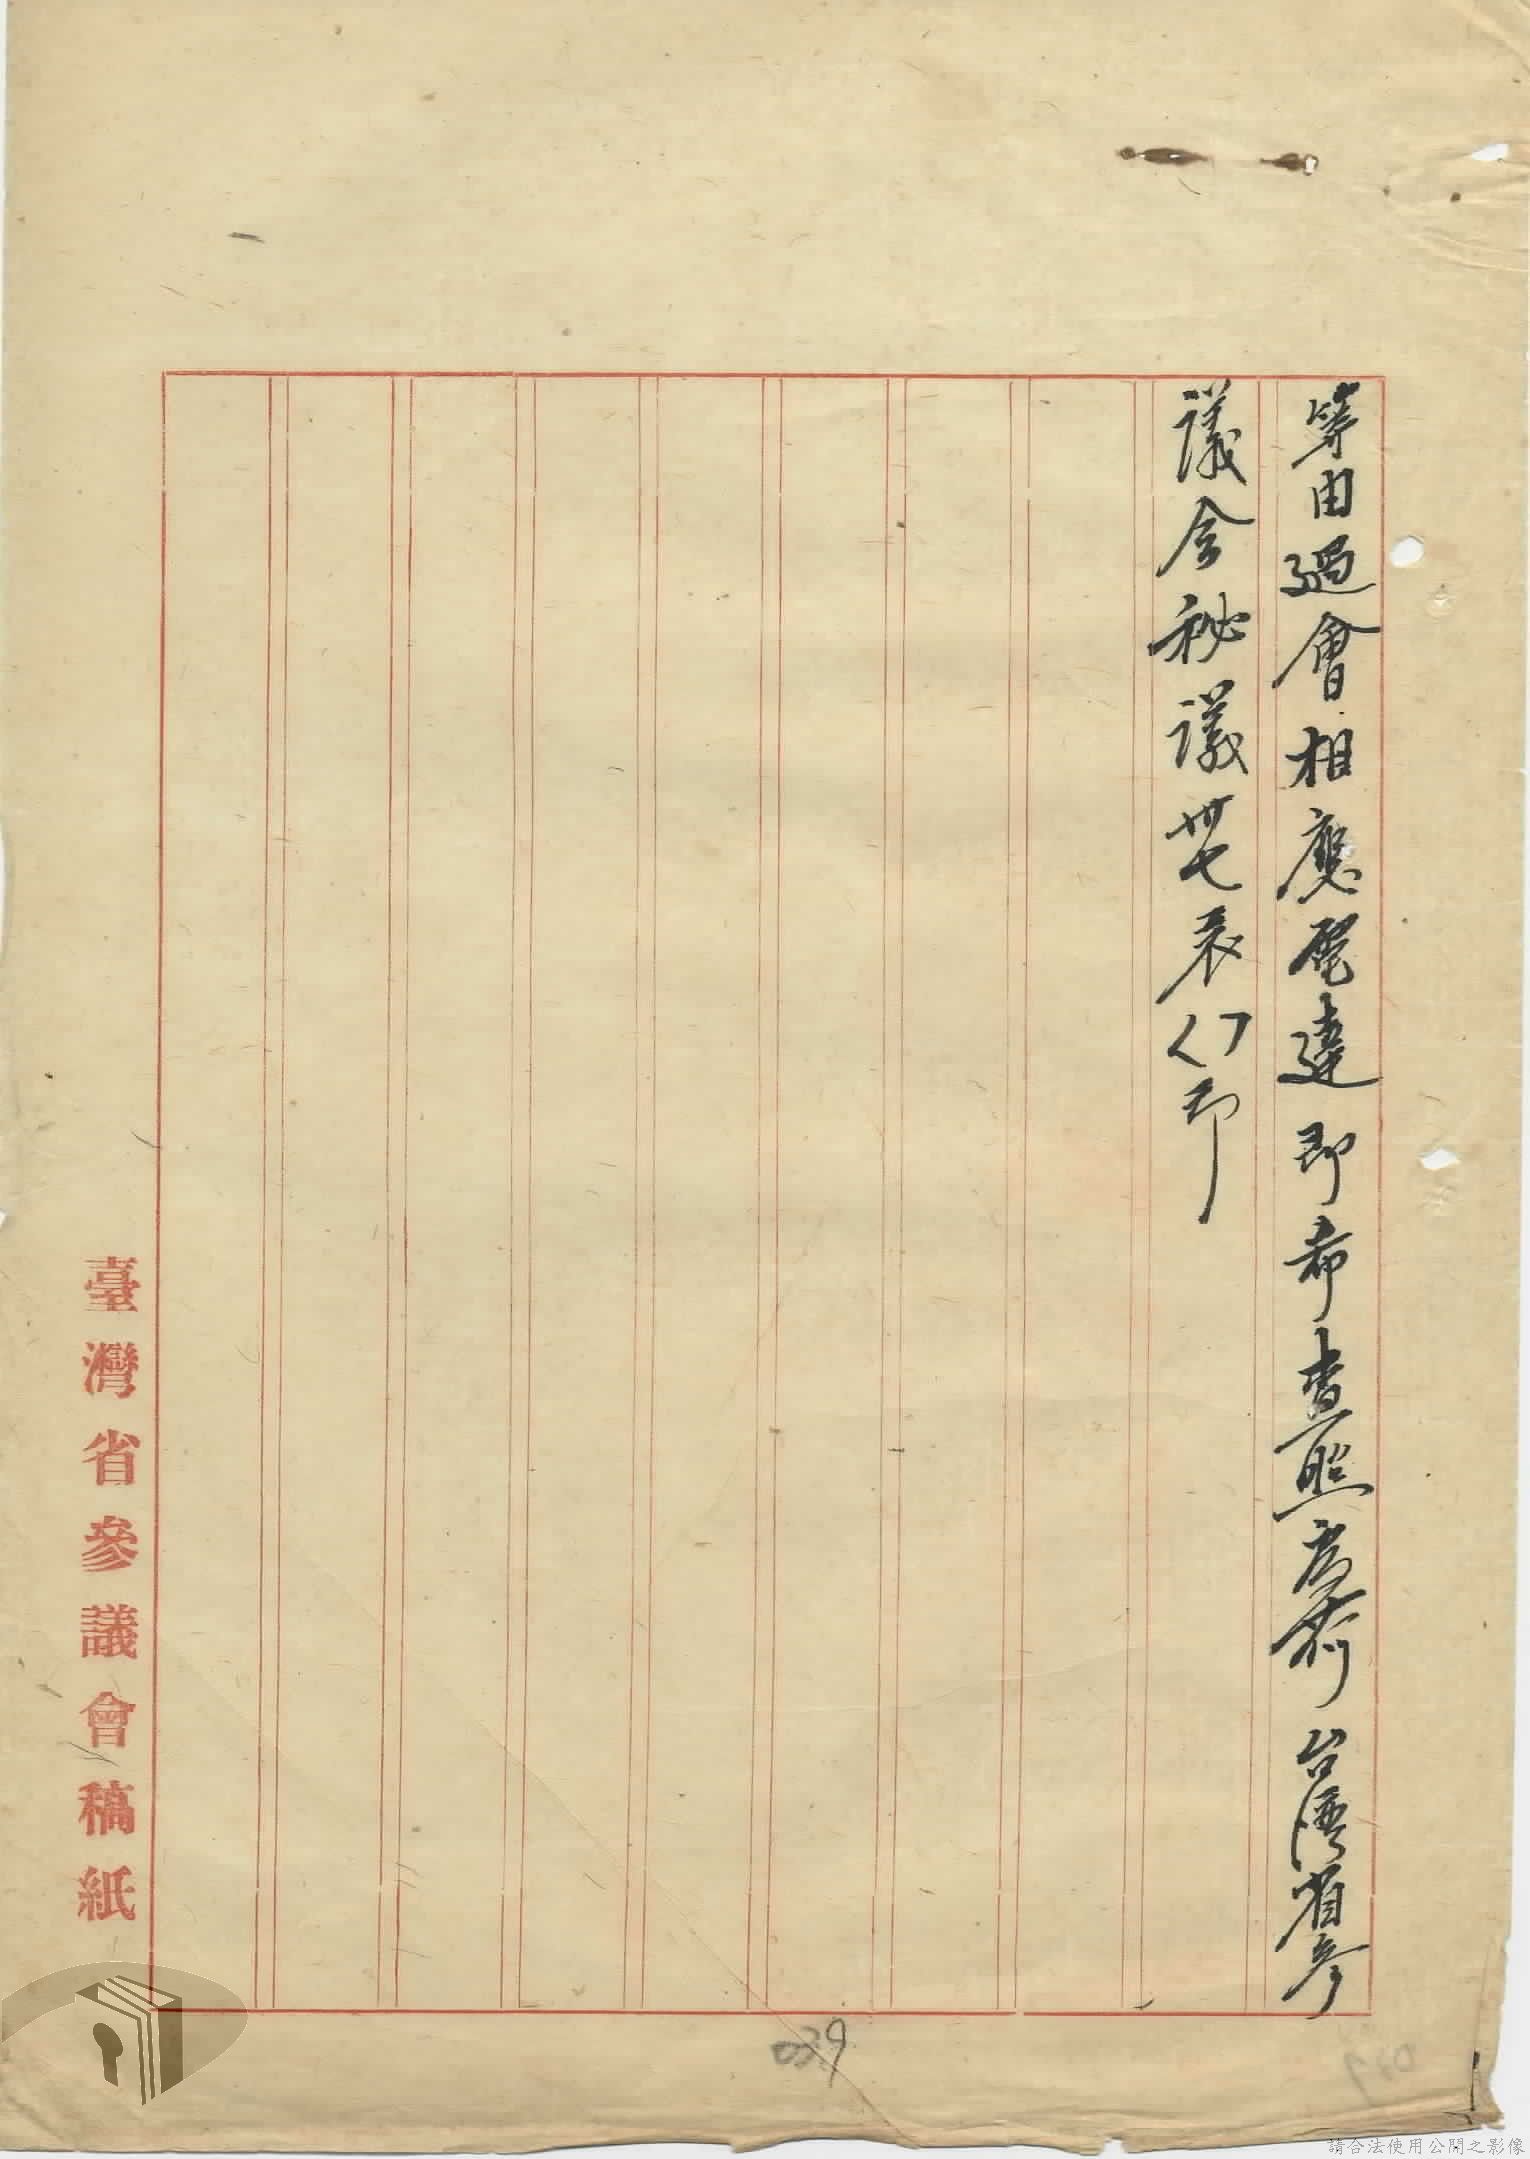 等由過會相應電達即希查照為荷台湾省參
議会秘議卅七表( )印
臺灣省參議會稿紙
039
請合法使用公開之影像